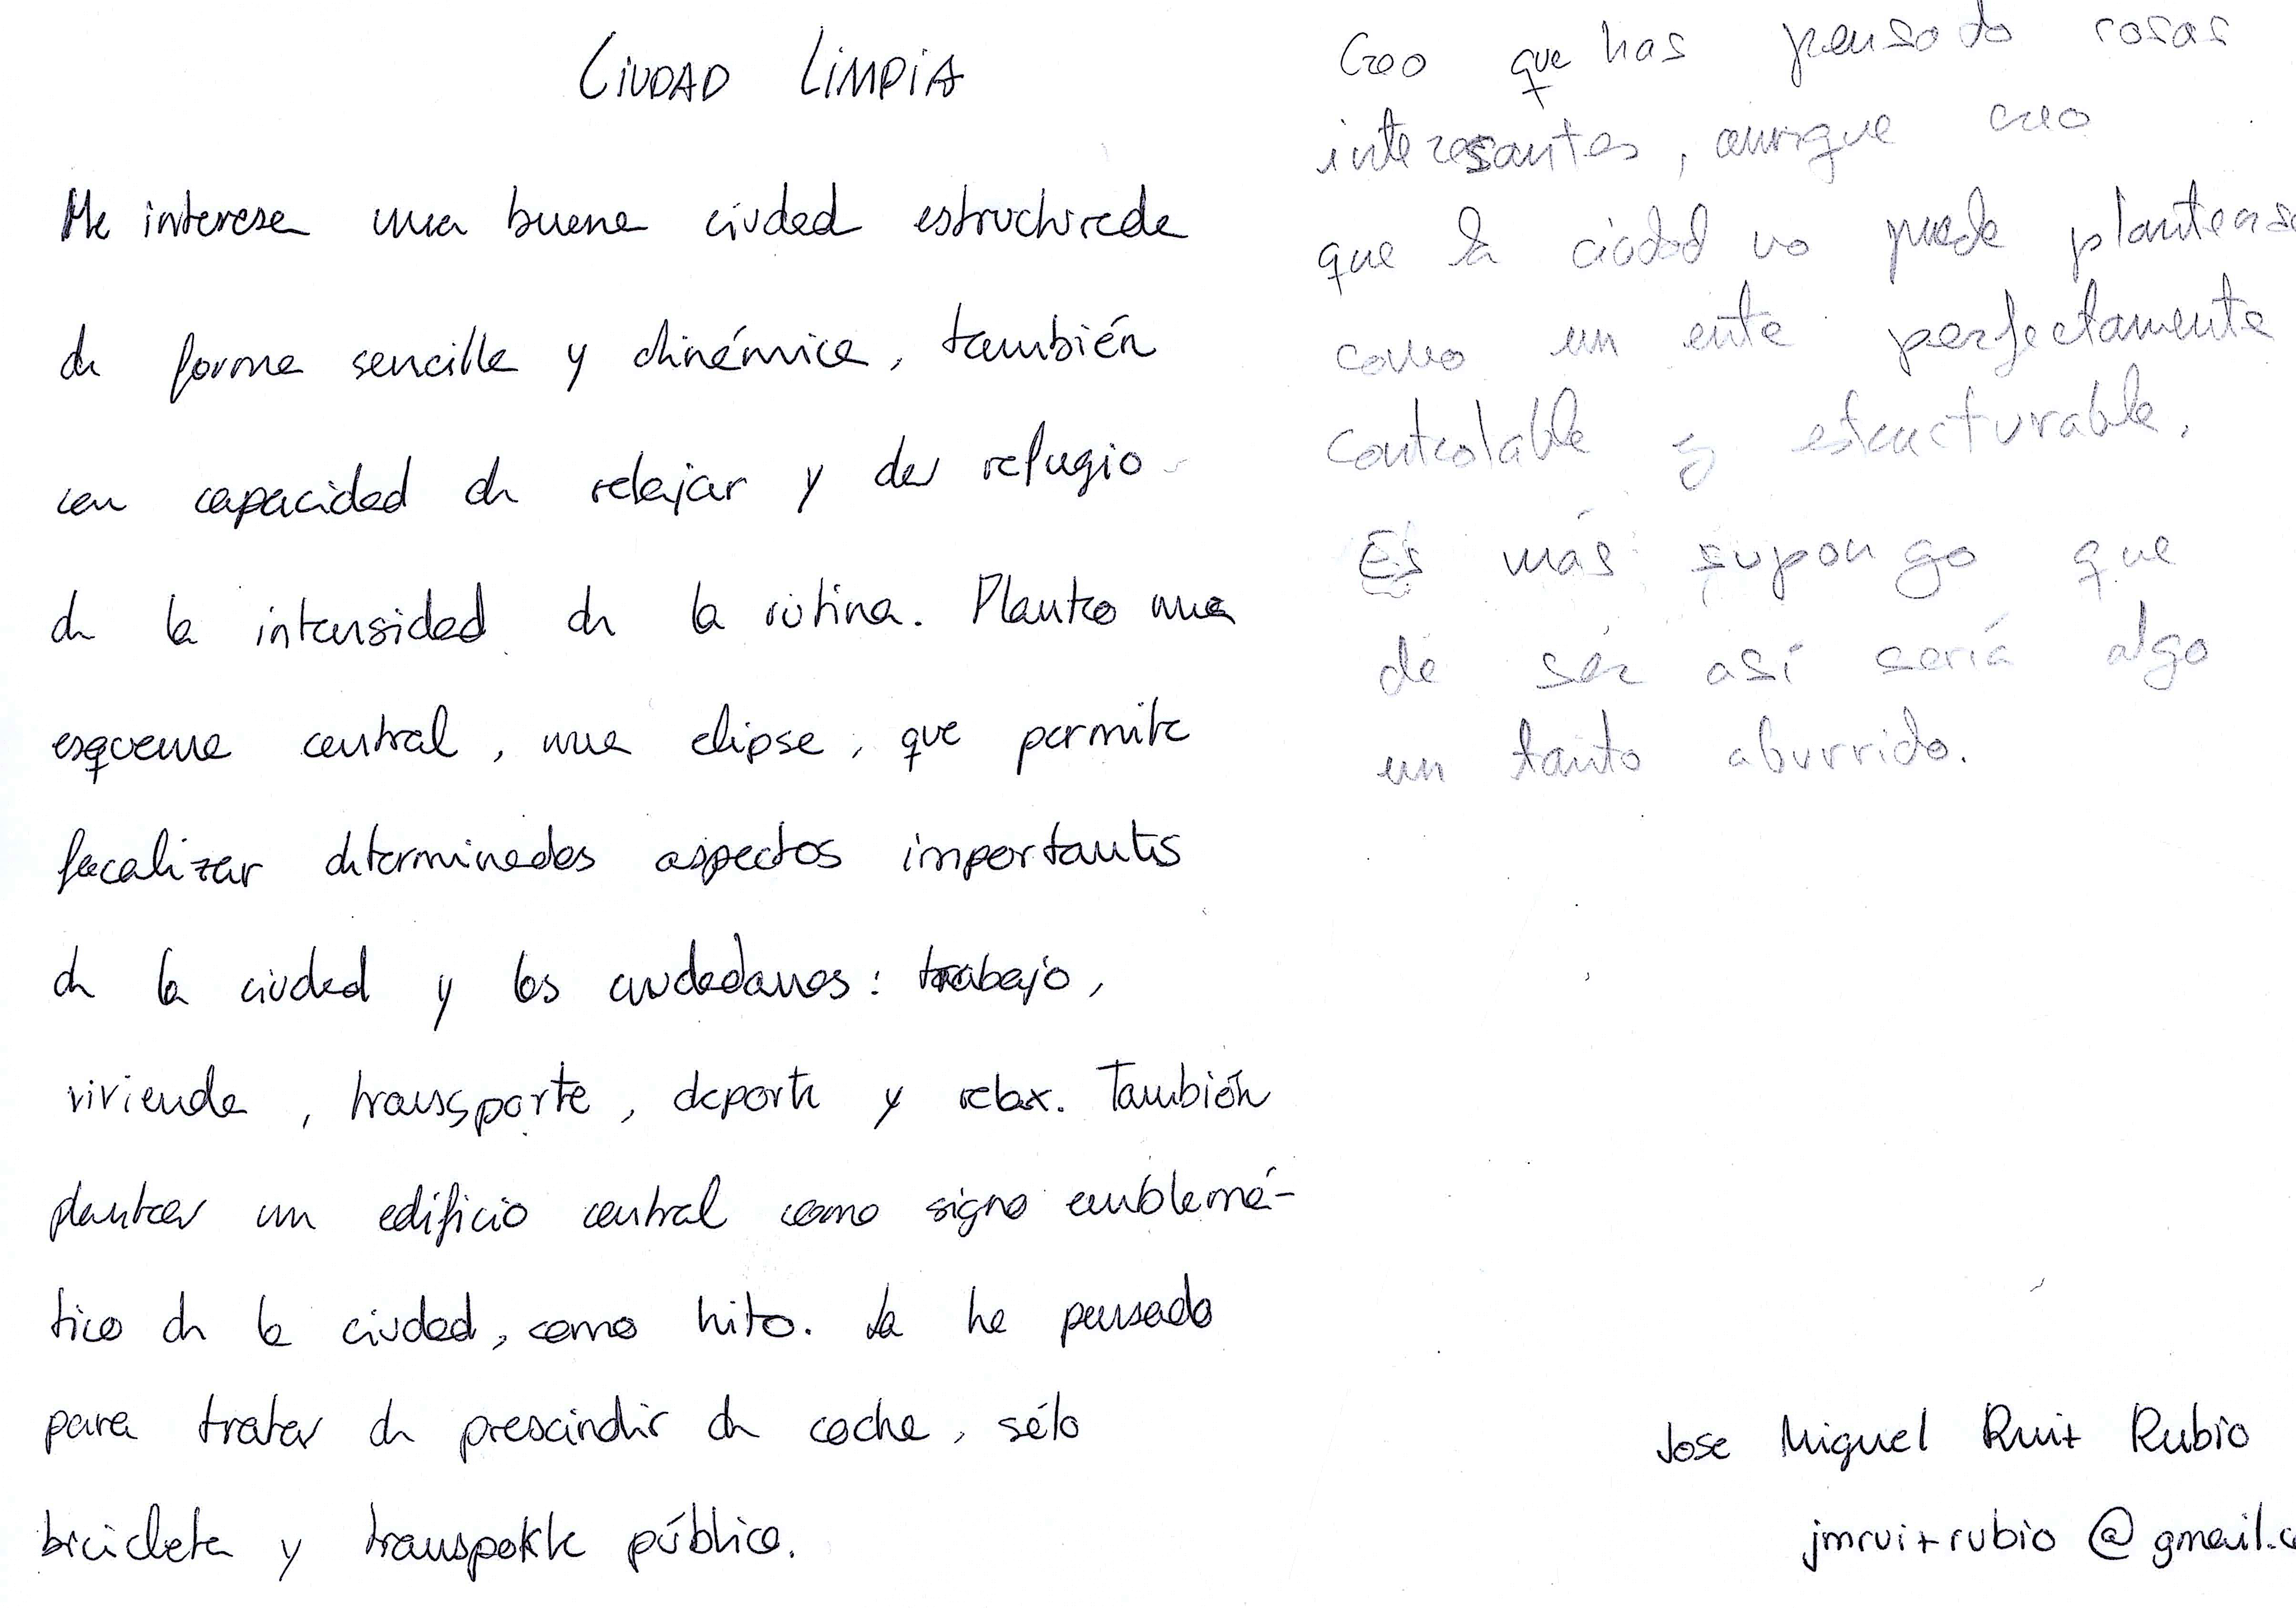 CIUDAD LIMPIA
Me interesa una buena ciudad estructurada
de forma sencilla y dinámica, también
con capacidad de relajar y dar refugio
de la intensidad de la rutina. Planteo una
esquema central, una elipse, que permite
focalizar determinados aspectos importantes
de la ciudad y los ciudadanos: trabajo,
vivienda, transporte, deporte y relax. También
plantear un edificio central como signo emblemá-
tico de la ciudad, como hito. La he pensado
para tratar de prescindir de coche, sólo
bicicleta y transporte público.
Creo que has pensado cosas
interesantes, aunque creo
que la ciudad no puede plantearse
como un ente perfectamente
controlable y estructurable.
Es más supongo que
de ser así sería algo
un tanto aburrido.
Jose Miguel Ruiz Rubio
jmruizrubio@gmail.c